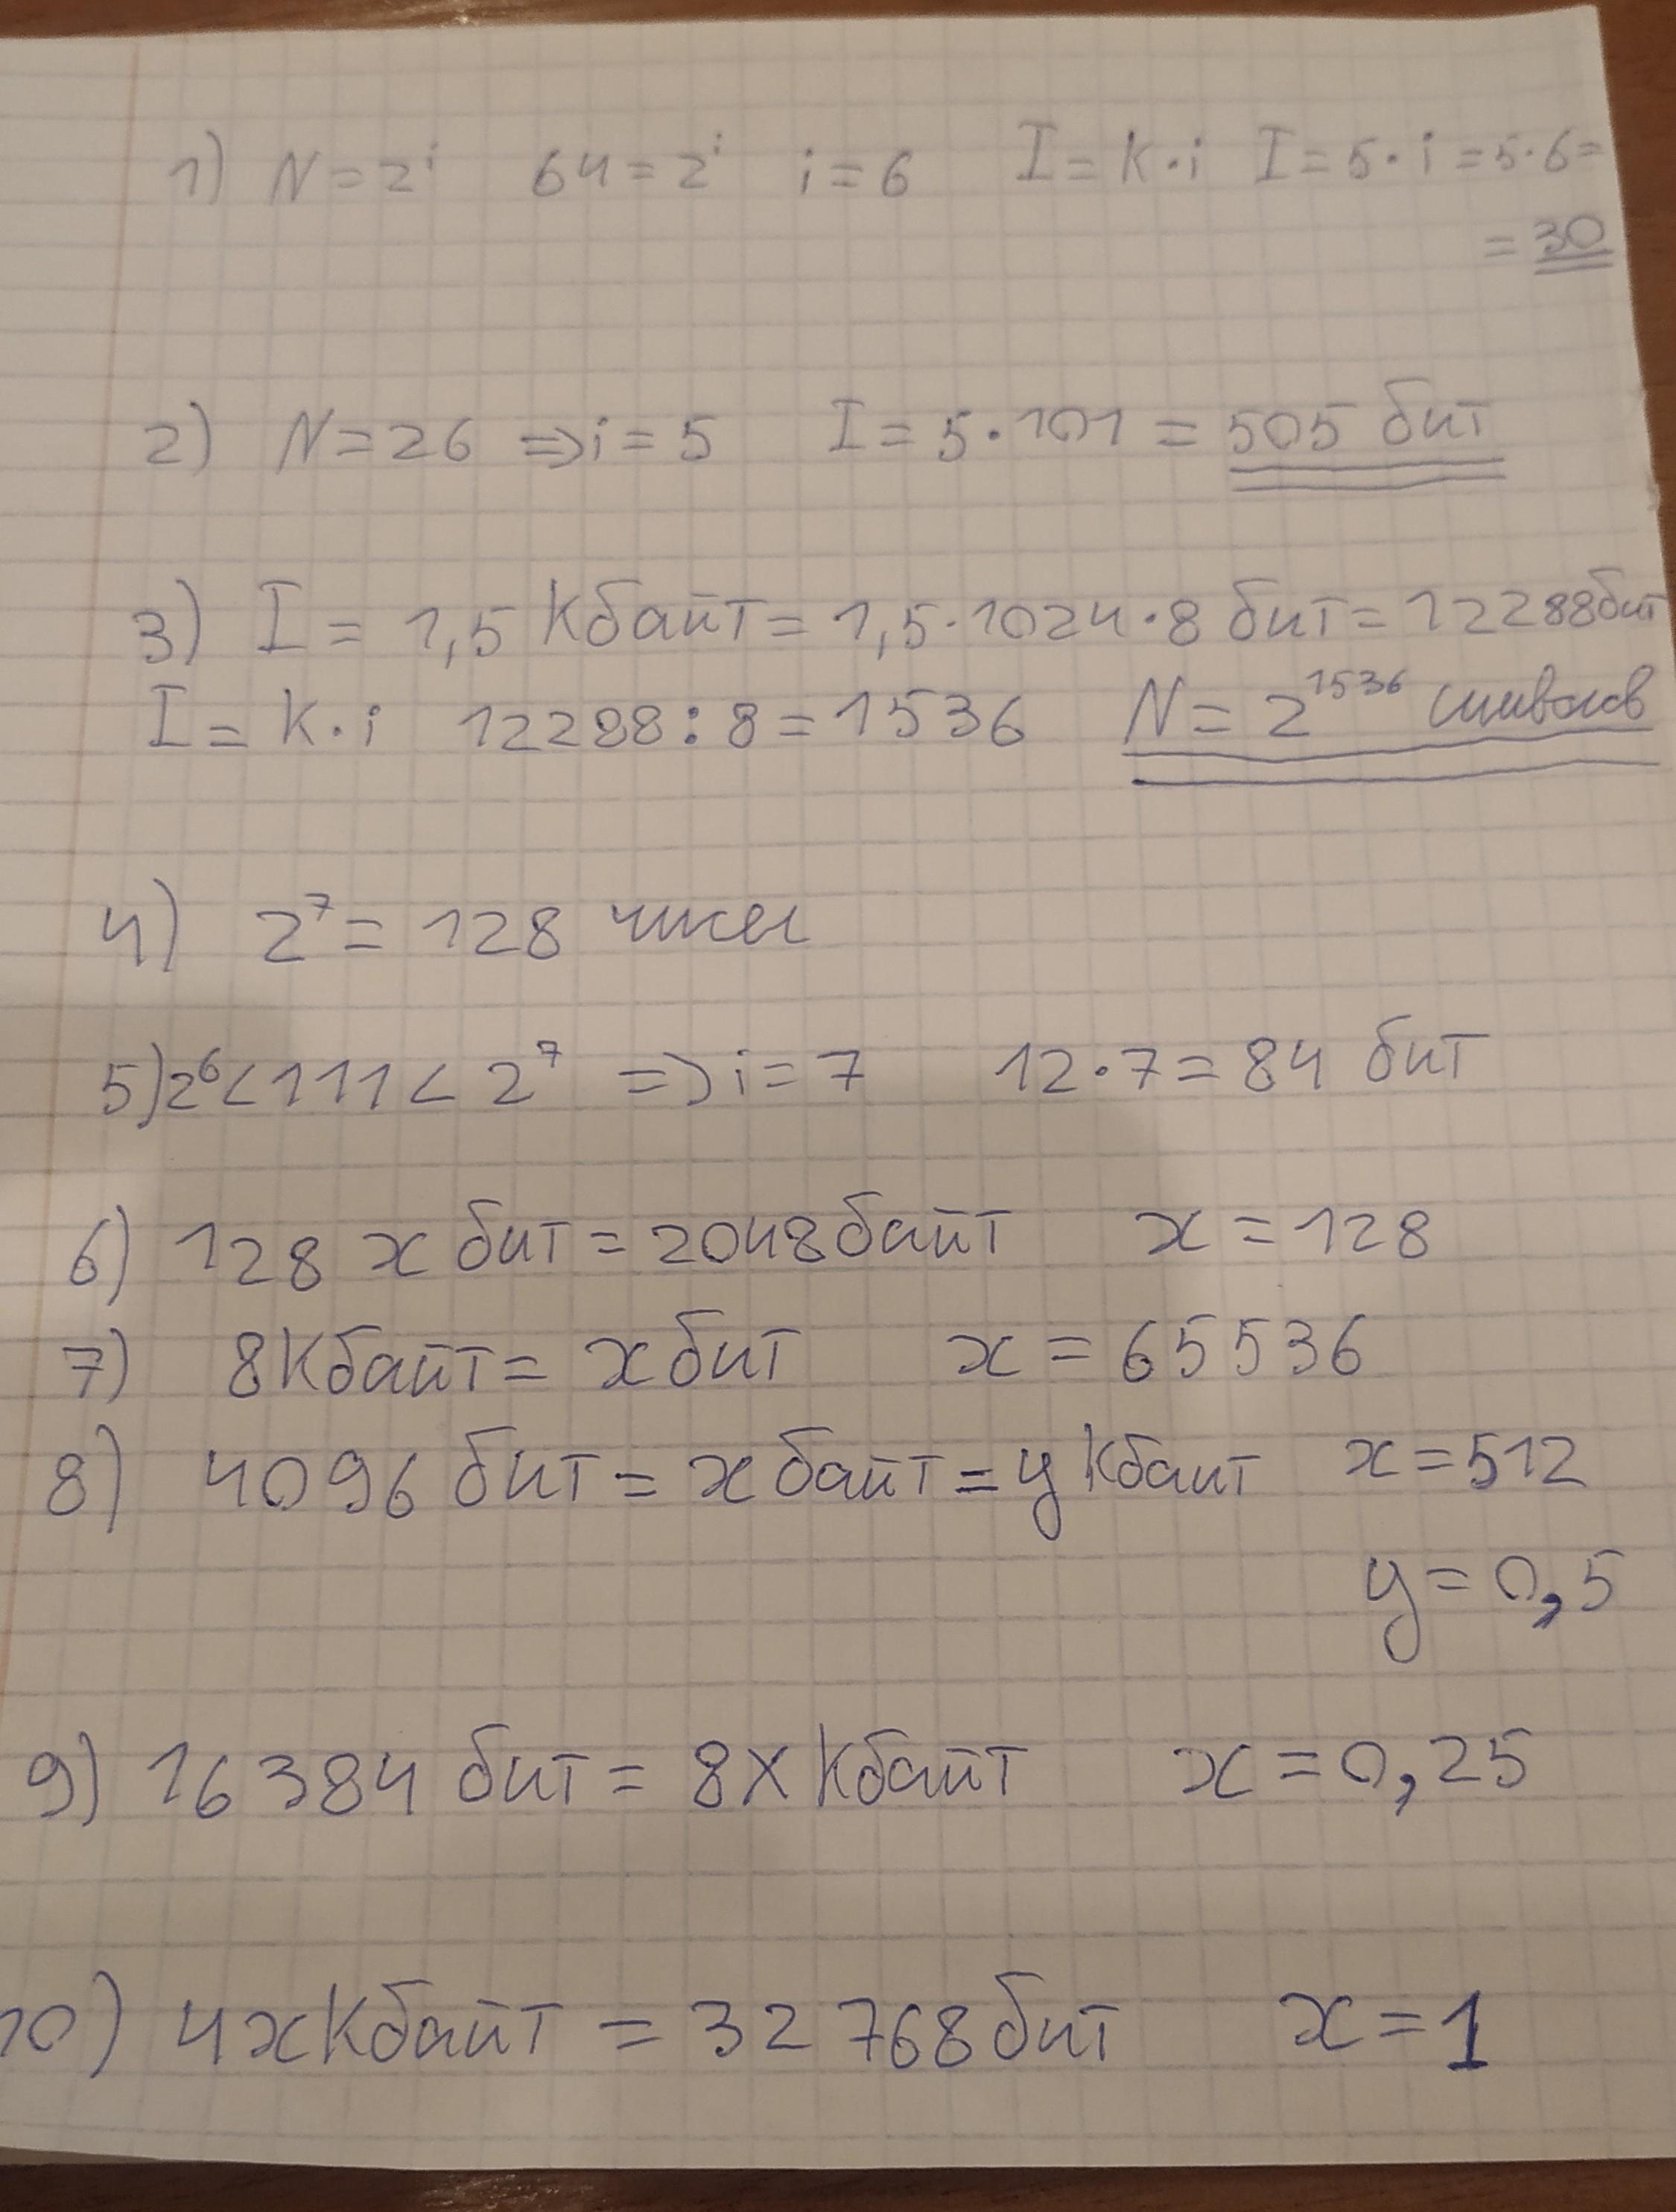 1) N = 2^i 64 = 2^i i = 6 I = K · i I = 5 · i = 5 · 6 =
= 30
2) N = 26 => i = 5 I = 5 · 101 = 505 бит
3) I = 1,5 Кбайт = 1,5 · 1024 · 8 бит = 12288 бит
I = K · i 12288 : 8 = 1536 N = 2^1536 символов
4) 2^7 = 128 чисел
5) 2^6 < 111 < 2^7 => i = 7 12 · 7 = 84 бит
6) 128 x бит = 2048 байт x = 128
7) 8 Кбайт = x бит x = 65536
8) 4096 бит = x байт = y Кбайт x = 512
y = 0,5
9) 16384 бит = 8x Кбайт x = 0,25
10) 4x Кбайт = 32768 бит x = 1